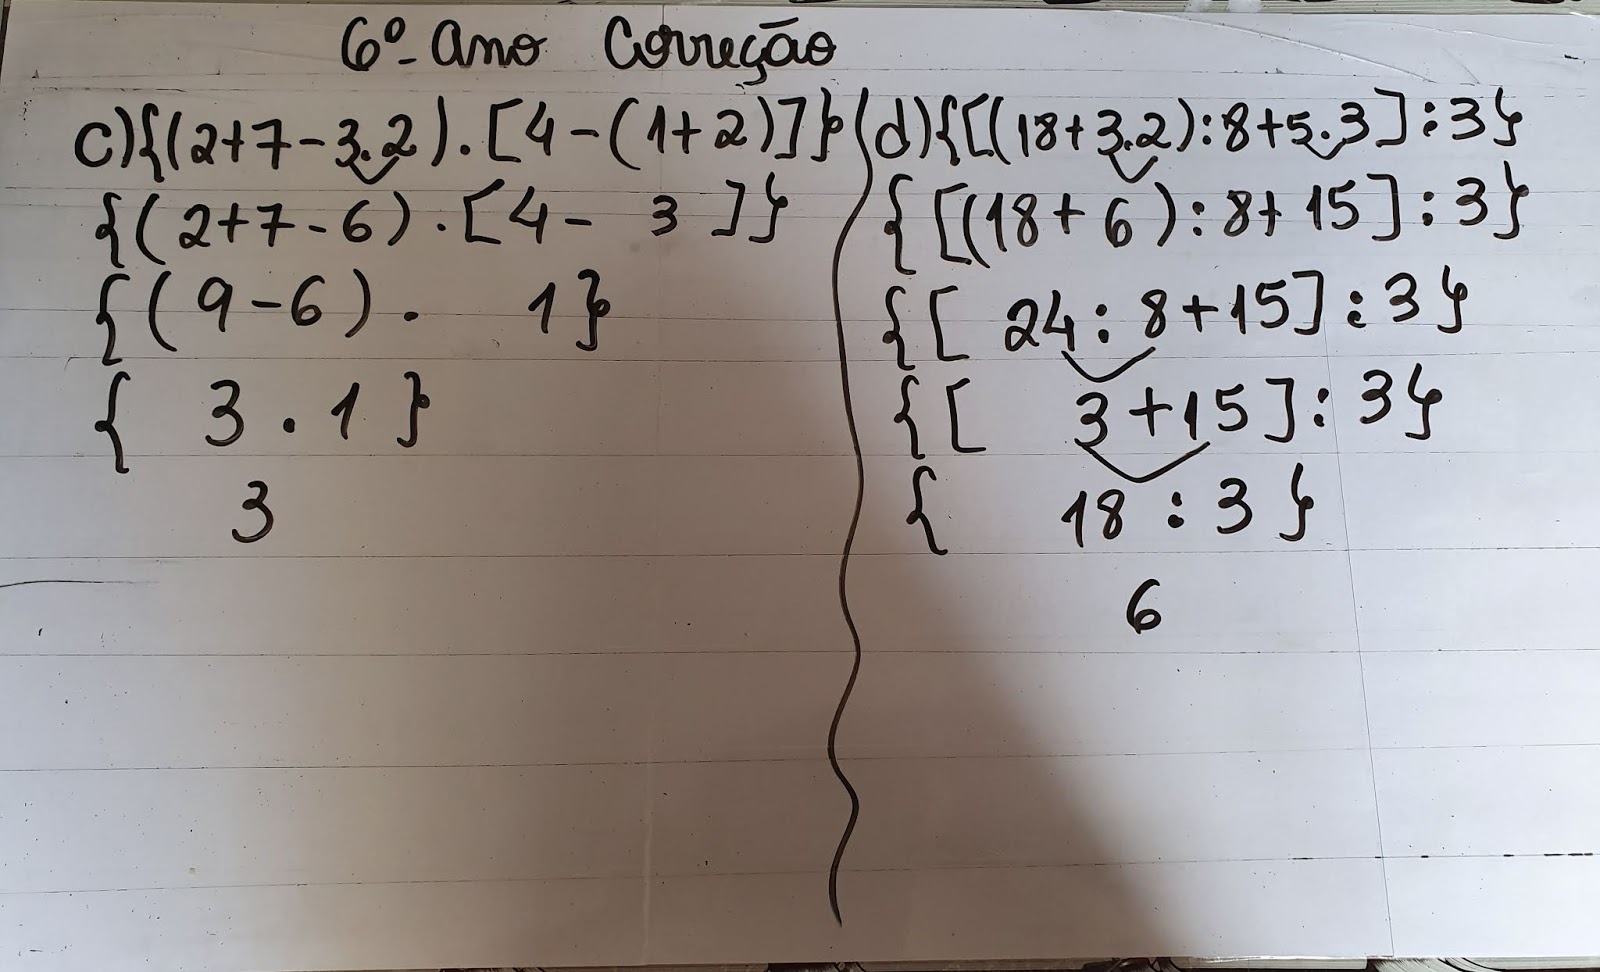 6º Ano Correção
c){(2+7-3.2).[4-(1+2)]}
{(2+7-6).[4- 3 ]}
{(9-6). 1}
{ 3 . 1 }
3
d){[(18+3.2):8+5.3]:3}
{[(18+6):8+15]:3}
{[ 24:8+15]:3}
{[ 3+15]:3}
{ 18:3}
6